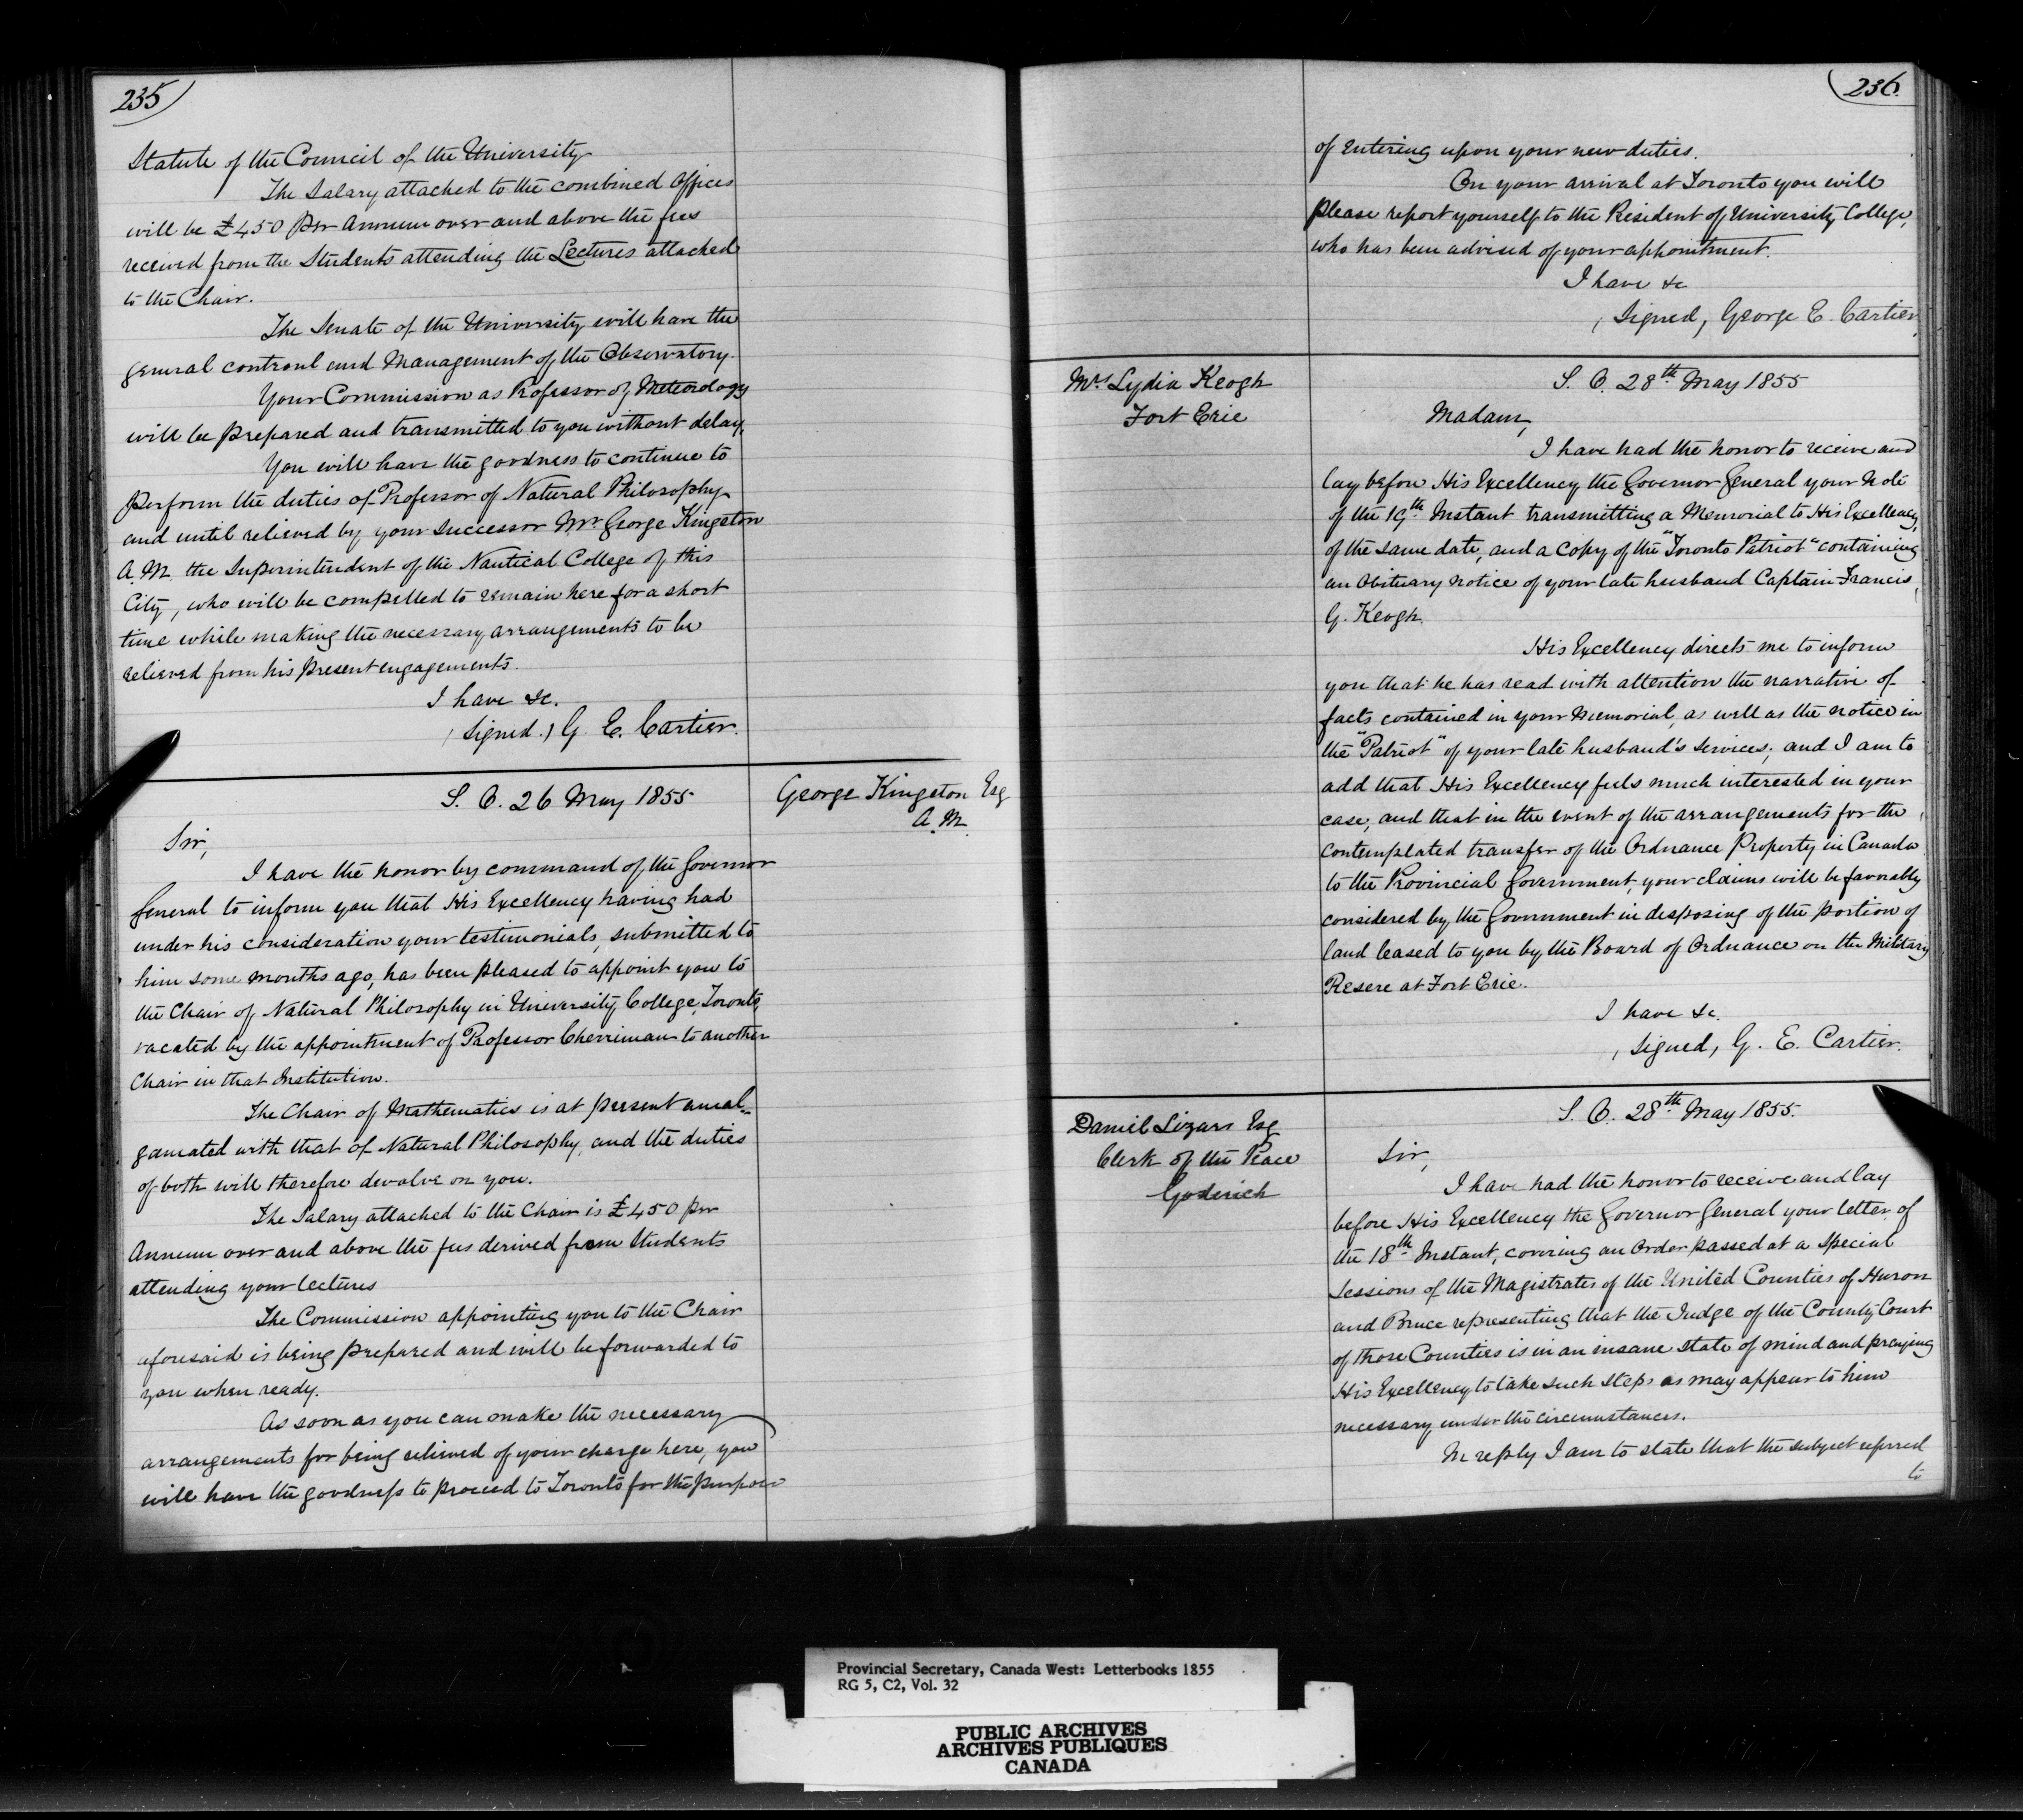 235
Statute of the Council of the University
The Salary attached to the combined Offices
will be £450 per Annum over and above the fees
received from the Students attending the Lectures attached
to the Chair.
The Senate of the University will have the
general controul and Management of the Observatory.
Your Commission as Professor of Meteorology
will be prepared and transmitted to you without delay.
You will have the goodness to continue to
perform the duties of Professor of Natural Philosophy
and until relieved by your successor Mr George Kingston
A.M. the Superintendent of the Nautical College of this
City, who will be compelled to remain here for a short
time while making the necessary arrangements to be
relieved from his present engagements.
I have &c.
(Signed.) G. E. Cartier.
George Kingston Esq
A.M.
S. O. 26 May 1855
Sir,
I have the honor by command of the Governor
General to inform you that His Excellency having had
under his consideration your testimonials, submitted to
him some months ago, has been pleased to appoint you to
the Chair of Natural Philosophy in University College, Toronto,
vacated by the appointment of Professor Cherriman to another
Chair in that Institution.
The Chair of Mathematics is at present amal-
gamated with that of Natural Philosophy, and the duties
of both will therefore devolve on you.
The Salary attached to the Chair is £450 per
Annum over and above the fees derived from Students
attending your lectures
The Commission appointing you to the Chair
aforesaid is being prepared and will be forwarded to
you when ready.
As soon as you can make the necessary
arrangements for being relieved of your charge here, you
will have the goodness to proceed to Toronto for the purpose
236.
of entering upon your new duties.
On your arrival at Toronto you will
please report yourself to the President of University College,
who has been advised of your appointment.
I have &c
(Signed, George E. Cartier
Mrs Lydia Keogh
Fort Erie
S. O. 28th May 1855
Madam,
I have had the honor to receive and
lay before His Excellency the Governor General your Note
of the 19th Instant transmitting a Memorial to His Excellency,
of the same date, and a Copy of the "Toronto Patriot" containing
an Obituary notice of your late husband Captain Francis
G. Keogh.
His Excellency directs me to inform
you that he has read with attention the narrative of
facts contained in your Memorial, as well as the notice in
the "Patriot" of your late husband's services; and I am to
add that His Excellency feels much interested in your
case, and that in the event of the arrangements for the
contemplated transfer of the Ordnance Property in Canada
to the Provincial Government, your claims will be favorably
considered by the Government in disposing of the portion of
land leased to you by the Board of Ordnance on the Military
Resere at Fort Erie.
I have &c.
(Signed, G. E. Cartier.
Daniel Lizars Esq
Clerk of the Peace
Goderich
S. O. 28th May 1855.
Sir,
I have had the honor to receive and lay
before His Excellency the Governor General your letter of
the 18th Instant, covering an Order passed at a Special
Sessions of the Magistrates of the United Counties of Huron
and Bruce representing that the Judge of the County Court
of those Counties is in an insane state of mind and praying
His Excellency to take such steps as may appear to him
necessary under the circumstances.
In reply I am to state that the subject referred
to
Provincial Secretary, Canada West: Letterbooks 1855
RG 5, C2, Vol. 32
PUBLIC ARCHIVES
ARCHIVES PUBLIQUES
CANADA